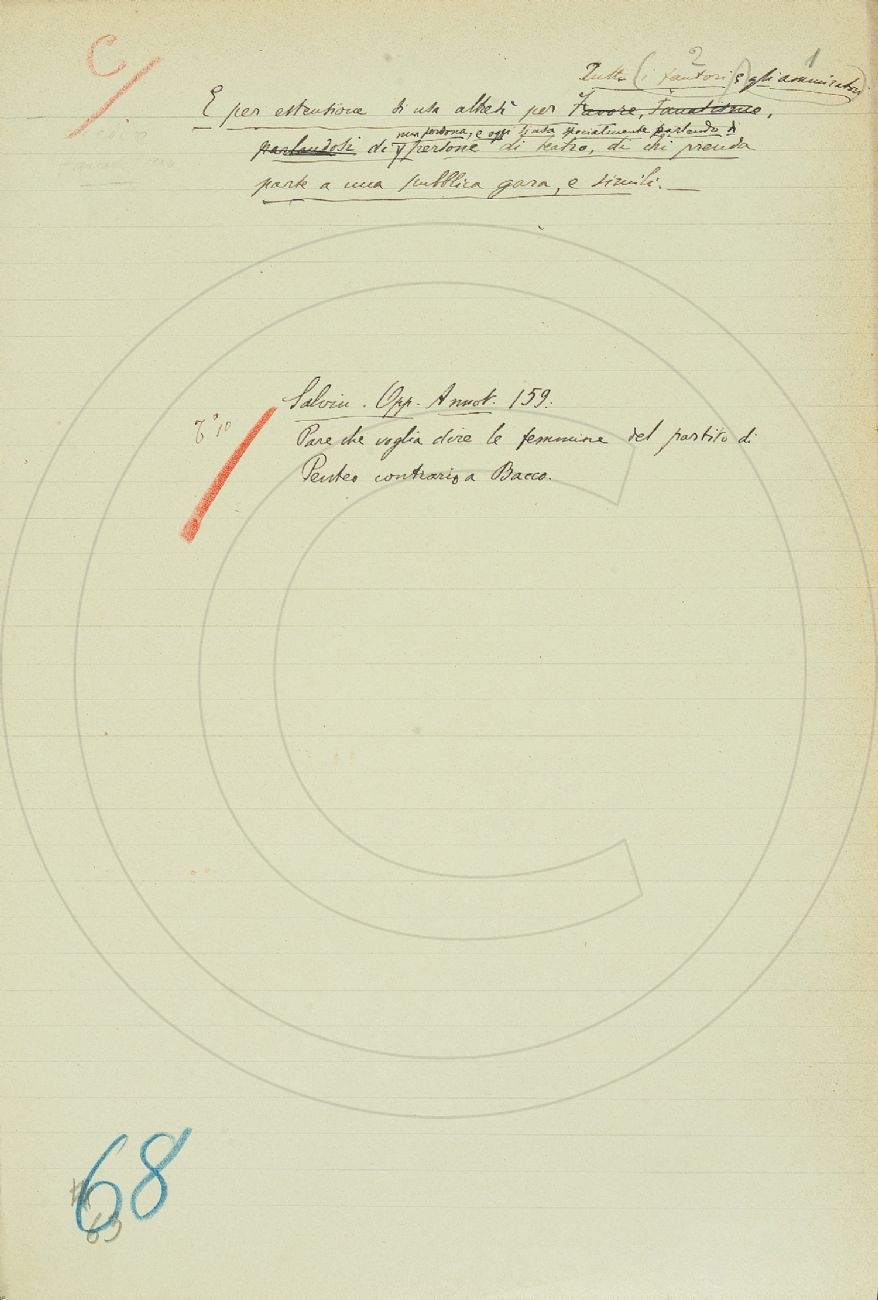 C
Tutti (i fautori) e gli ammiratori
2 1
E per estensione si usa altresì per Favore, Fanatismo,
una persona, e oggi si usa specialmente parlando di
parlandosi di persone di teatro, di chi prenda
parte a una pubblica gara, e simili. —
Salvin. Opp. Annot. 159.
Pare che voglia dire le femmine del partito di
Penteo contrario a Bacco.
68
63